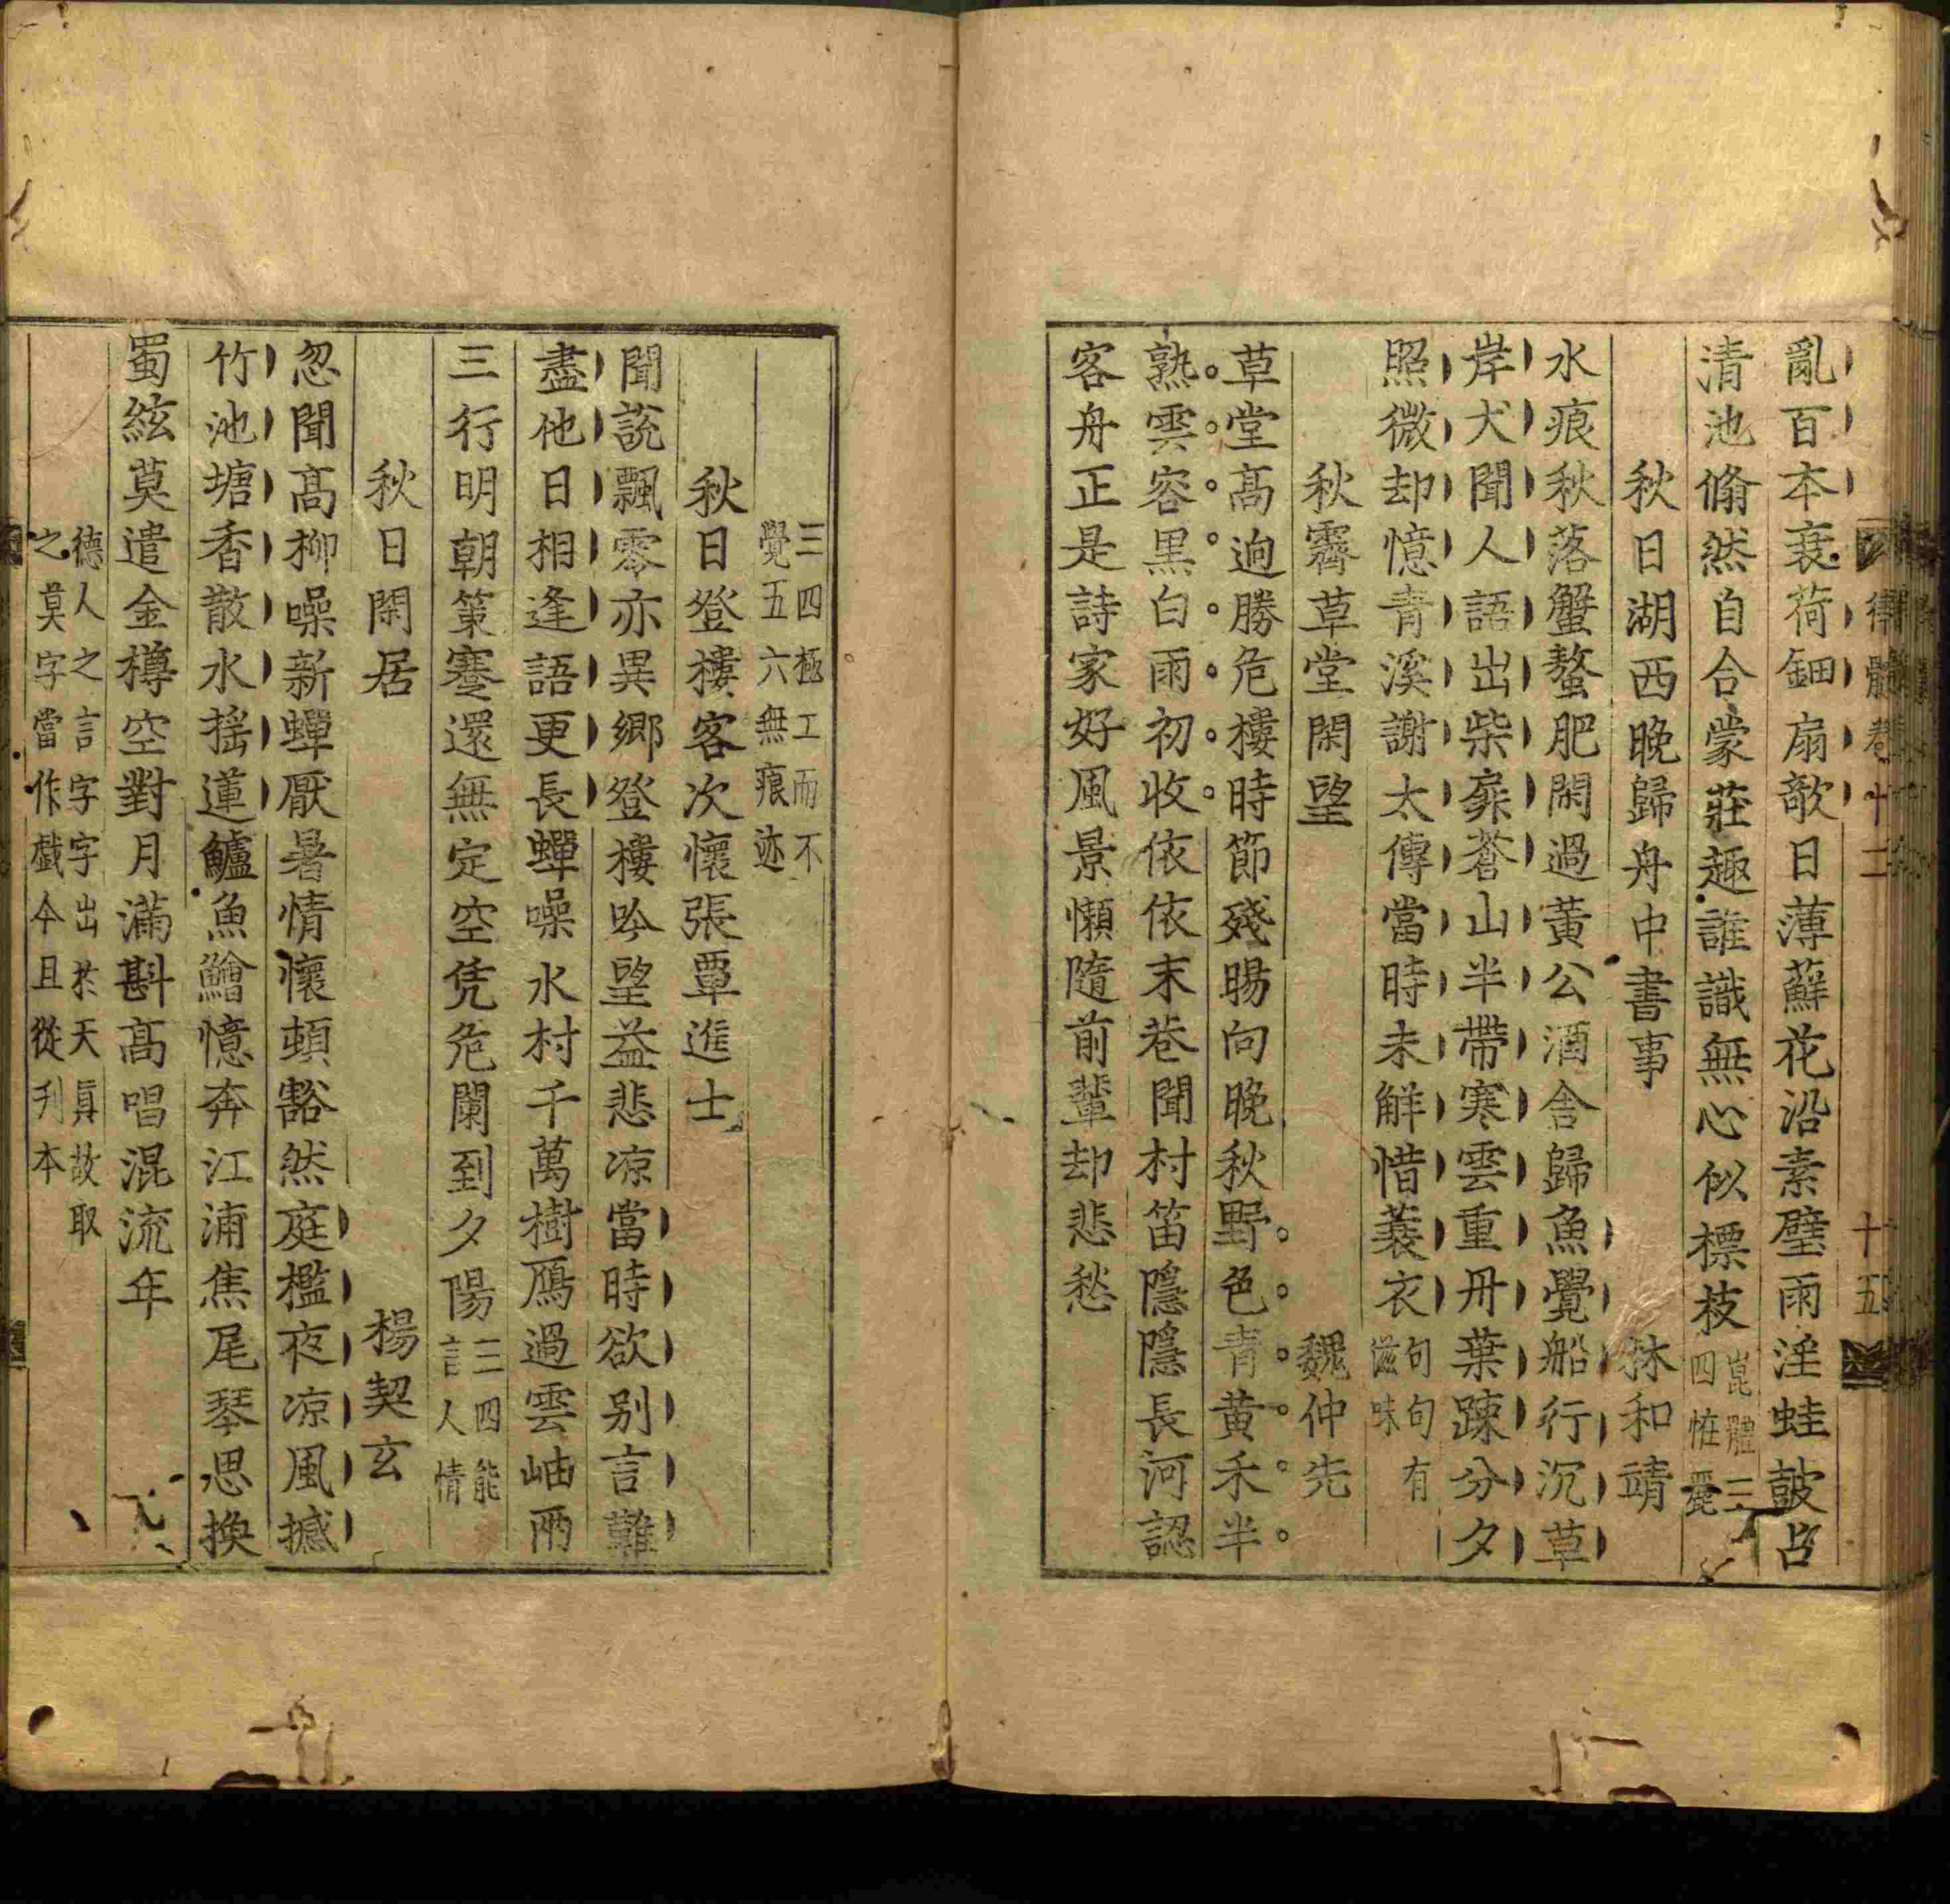 律髓卷十二
十五
亂百本衰荷鈿扇欹日薄蘚花沿素璧雨淫蛙鼓占
清池翛然自合蒙莊趣誰識無心似標枝崑體三
四恠麗
秋日湖西晚歸舟中書事
林和靖
水痕秋落蟹螯肥閑過黃公酒舍歸魚覺船行沉草
岸犬聞人語出柴扉蒼山半帶寒雲重丹葉踈分夕
照微却憶青溪謝太傅當時未解惜蓑衣句句有
滋味
秋霽草堂閑望
魏仲先
草堂高逈勝危樓時節殘暘向晚秋野色青黃禾半
熟雲容黑白雨初收依依末巷聞村笛隱隱長河認
客舟正是詩家好風景懶隨前輩却悲愁
三四極工而不
覺五六無痕迹
秋日登樓客次懷張覃進士
聞說飄零亦異鄉登樓吟望益悲凉當時欲別言難
盡他日相逢語更長蟬噪水村千萬樹鴈過雲岫兩
三行明朝策蹇還無定空凭危闌到夕陽三四能
言人情
秋日閑居
楊契玄
忽聞高柳噪新蟬厭暑情懷頓豁然庭檻夜凉風撼
竹池塘香散水搖蓮鱸魚鱠憶奔江浦焦尾琴思換
蜀絃莫遣金樽空對月滿斟高唱混流年
德人之言字字出於天眞故取
之莫字當作戯今且從刋本